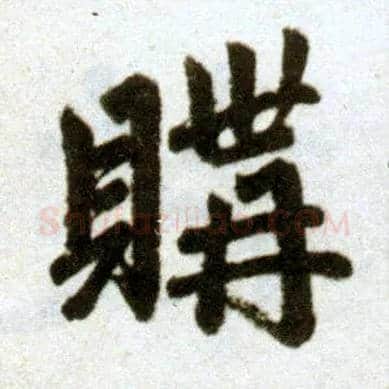 購
shufaziliao.com